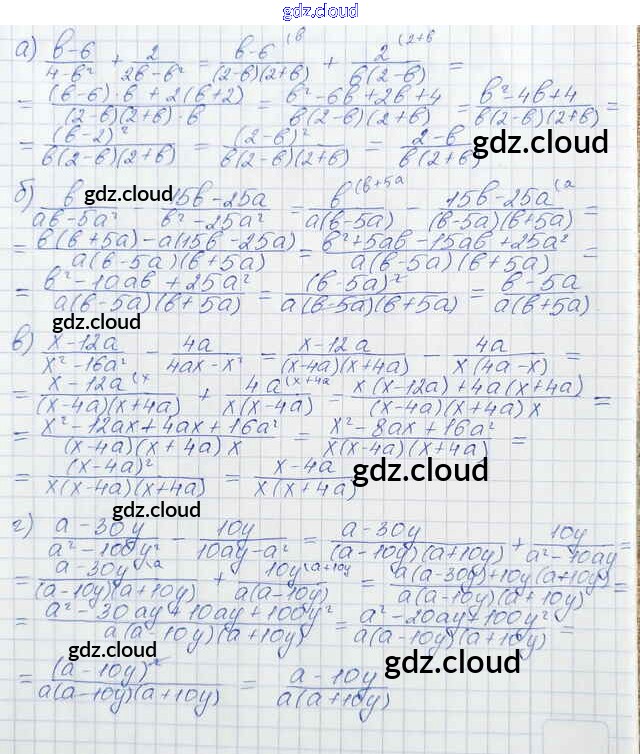 gdz.cloud
а) (b-6)/(4-b²) + 2/(2b-b²) = (b-6)/((2-b)(2+b)) (b + 2/(b(2-b)) (2+b =
= ((b-6)·b+2(b+2))/((2-b)(2+b)·b) = (b²-6b+2b+4)/(b(2-b)(2+b)) = (b²-4b+4)/(b(2-b)(2+b)) =
= (b-2)²/(b(2-b)(2+b)) = (2-b)²/(b(2-b)(2+b)) = (2-b)/(b(2+b)) gdz.cloud
б) b/(ab-5a²) - (15b-25a)/(b²-25a²) = b/(a(b-5a)) (b+5a - (15b-25a)/((b-5a)(b+5a)) (a =
gdz.cloud
= (b(b+5a)-a(15b-25a))/(a(b-5a)(b+5a)) = (b²+5ab-15ab+25a²)/(a(b-5a)(b+5a)) =
= (b²-10ab+25a²)/(a(b-5a)(b+5a)) = (b-5a)²/(a(b-5a)(b+5a)) = (b-5a)/(a(b+5a))
gdz.cloud
в) (x-12a)/(x²-16a²) - 4a/(4ax-x²) = (x-12a)/((x-4a)(x+4a)) - 4a/(x(4a-x)) =
= (x-12a)/((x-4a)(x+4a)) (x + 4a/(x(x-4a)) (x+4a = (x(x-12a)+4a(x+4a))/((x-4a)(x+4a)x) =
= (x²-12ax+4ax+16a²)/((x-4a)(x+4a)x) = (x²-8ax+16a²)/(x(x-4a)(x+4a)) =
= (x-4a)²/(x(x-4a)(x+4a)) = (x-4a)/(x(x+4a)) gdz.cloud
gdz.cloud
г) (a-30y)/(a²-100y²) - 10y/(10ay-a²) = (a-30y)/((a-10y)(a+10y)) + 10y/(a²-10ay) =
= (a-30y)/((a-10y)(a+10y)) (a + 10y/(a(a-10y)) (a+10y = (a(a-30y)+10y(a+10y))/(a(a-10y)(a+10y)) =
= (a²-30ay+10ay+100y²)/(a(a-10y)(a+10y)) = (a²-20ay+100y²)/(a(a-10y)(a+10y)) =
gdz.cloud
= (a-10y)²/(a(a-10y)(a+10y)) = (a-10y)/(a(a+10y)) gdz.cloud